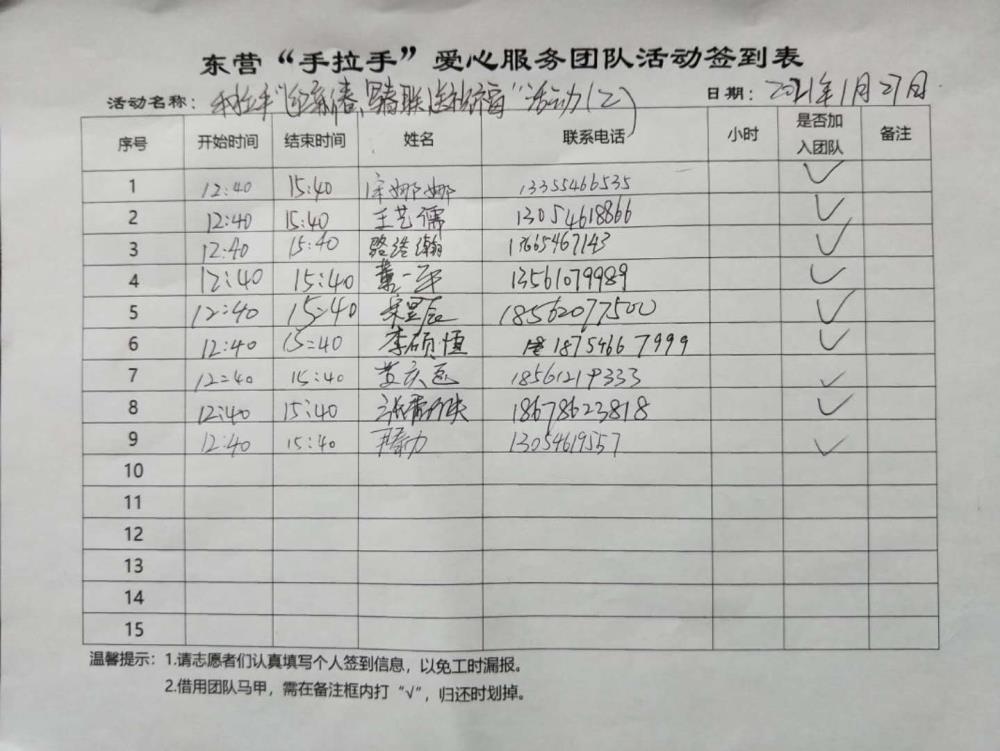 东营“手拉手”爱心服务团队活动签到表
活动名称：手拉手“迎新春、写春联、送祝福”活动(2) 日期：2021年1月27日
序号 开始时间 结束时间 姓名 联系电话 小时 是否加入团队 备注
1 12:40 15:40 宋娜娜 13355466535 ✓
2 12:40 15:40 王艺儒 13054618866 ✓
3 12:40 15:40 路浩瀚 13665467143 ✓
4 12:40 15:40 董一平 13561079989 ✓
5 12:40 15:40 宋昱辰 18562077500 ✓
6 12:40 15:40 李硕恒 18754667999 ✓
7 12:40 15:40 18561219333 ✓
8 12:40 15:40 18678623818 ✓
9 12:40 15:40 13054619557 ✓
10
11
12
13
14
15
温馨提示：1.请志愿者们认真填写个人签到信息，以免工时漏报。
2.借用团队马甲，需在备注框内打“√”，归还时划掉。